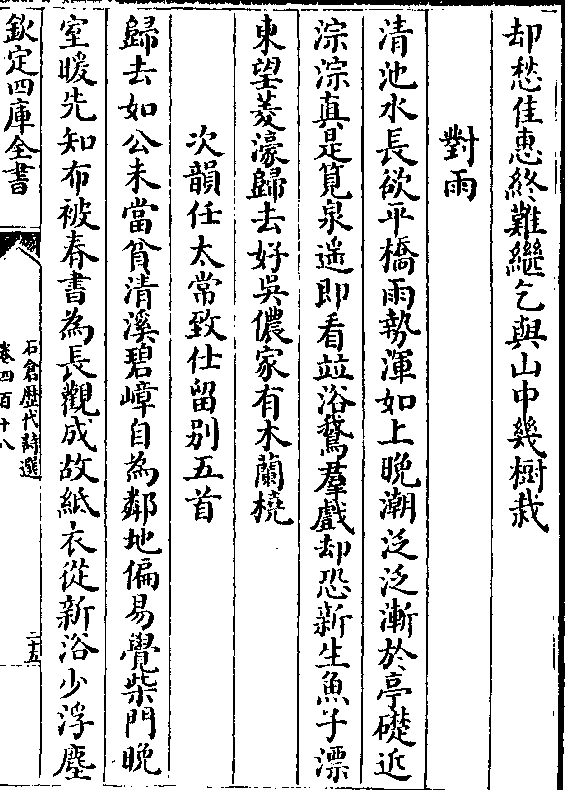 却愁佳惠終難繼乞與山中幾樹栽
對雨
清池水長欲平橋雨勢渾如上晚潮泛泛漸於亭礎近
淙淙真是筧泉遙即看竝浴鵞羣戲却恐新生魚子漂
東望菱濠歸去好吳儂家有木蘭橈
次韻任太常致仕留别五首
歸去如公未當貧清溪碧嶂自為鄰地偏易覺柴門晚
室暖先知布被春書為長觀成故紙衣從新浴少浮塵
欽定四庫全書
石倉歴代詩選
卷四百十八
二十五